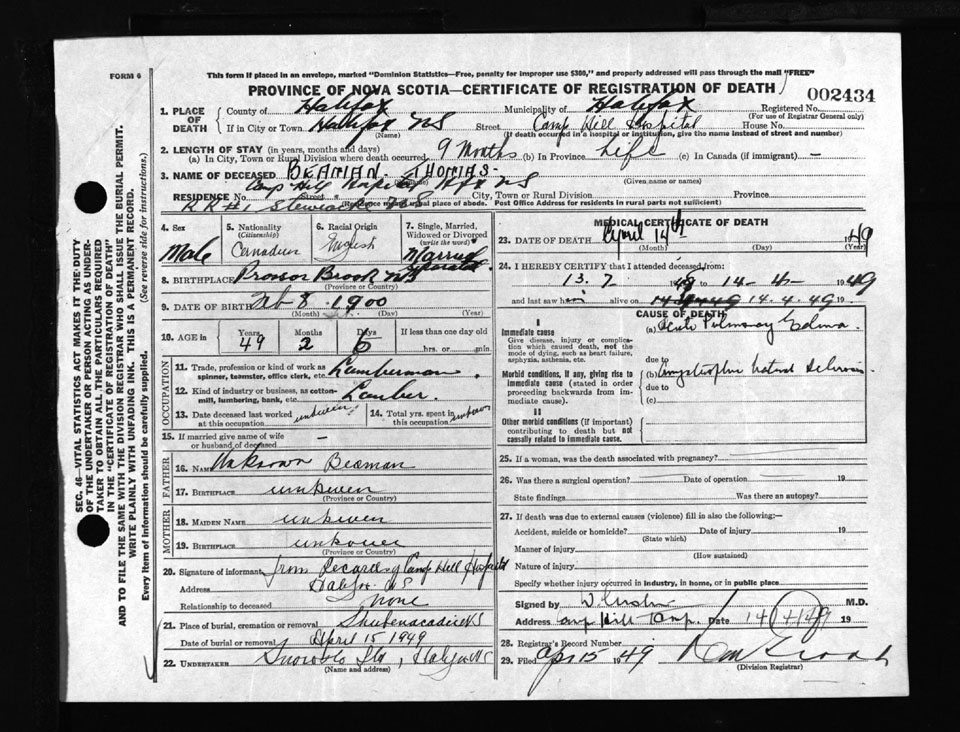 FORM 6
This form if placed in an envelope, marked "Dominion Statistics—Free, penalty for improper use $300," and properly addressed will pass through the mail "FREE"
PROVINCE OF NOVA SCOTIA—CERTIFICATE OF REGISTRATION OF DEATH
002434
1. PLACE OF DEATH
County of Halifax Municipality of Halifax Registered No.
(For use of Registrar General only)
If in City or Town Halifax NS Street Camp Hill Hospital House No.
(Name) (If death occurred in a hospital or institution, give its name instead of street and number)
2. LENGTH OF STAY (in years, months and days)
(a) In City, Town or Rural Division where death occurred 9 Months (b) In Province Life (c) In Canada (if immigrant) —
3. NAME OF DECEASED BEAMAN. THOMAS-
(Given name or names)
RESIDENCE Camp Hill Hospital Hfx NS City, Town or Rural Division Province
RR#1 Stewiacke NS place of abode. Post Office Address for residents in rural parts not sufficient
4. Sex Male
5. Nationality (Citizenship) Canadian
6. Racial Origin English
7. Single, Married, Widowed or Divorced (write the word) Married
8. BIRTHPLACE Brook NS
(Province or Country)
9. DATE OF BIRTH 8 1900
(Month) (Day) (Year)
10. AGE in Years 49 Months 2 Days 6 If less than one day old
hrs. or min.
OCCUPATION
11. Trade, profession or kind of work as spinner, teamster, office clerk, etc. Lumberman
12. Kind of industry or business, as cotton-mill, lumbering, bank, etc. Lumber
13. Date deceased last worked at this occupation
14. Total yrs. spent in this occupation
15. If married give name of wife or husband of deceased —
FATHER
16. NAME Unknown Beaman
17. BIRTHPLACE
(Province or Country)
MOTHER
18. MAIDEN NAME
19. BIRTHPLACE
(Province or Country)
20. Signature of informant from Records of Camp Hill Hospital
Address Halifax NS
Relationship to deceased none
21. Place of burial, cremation or removal Shubenacadie NS
Date of burial or removal April 15 1949
22. UNDERTAKER Ltd, Halifax NS
(Name and address)
MEDICAL CERTIFICATE OF DEATH
23. DATE OF DEATH April 14th 1949
(Month) (Day) (Year)
24. I HEREBY CERTIFY that I attended deceased from:
13. 7 48 to 14-4- 1949
and last saw him alive on 14.4.49 19
CAUSE OF DEATH
I
Immediate cause
Give disease, injury or complication which caused death, not the mode of dying, such as heart failure, asphyxia, asthenia, etc.
(a) Acute Pulmonary Edema
due to
Morbid conditions, if any, giving rise to immediate cause (stated in order proceeding backwards from immediate cause).
(b) Amyotrophic Lateral Sclerosis
due to
(c)
II
Other morbid conditions (if important) contributing to death but not causally related to immediate cause.
25. If a woman, was the death associated with pregnancy?
26. Was there a surgical operation? Date of operation 19
State findings Was there an autopsy?
27. If death was due to external causes (violence) fill in also the following:—
Accident, suicide or homicide? Date of injury 19
(State which)
Manner of injury
(How sustained)
Nature of injury
Specify whether injury occurred in industry, in home, or in public place
Signed by M.D.
Address Camp Hill Hosp. Date 14/4/49 19
28. Registrar's Record Number
29. Filed Apr 15 1949
(Division Registrar)
SEC. 46—VITAL STATISTICS ACT MAKES IT THE DUTY
OF THE UNDERTAKER OR PERSON ACTING AS UNDER-
TAKER TO OBTAIN ALL THE PARTICULARS REQUIRED
IN THE "CERTIFICATE OF REGISTRATION OF DEATH"
AND TO FILE THE SAME WITH THE DIVISION REGISTRAR WHO SHALL ISSUE THE BURIAL PERMIT.
WRITE PLAINLY WITH UNFADING INK. THIS IS A PERMANENT RECORD.
Every item of information should be carefully supplied. (See reverse side for instructions.)